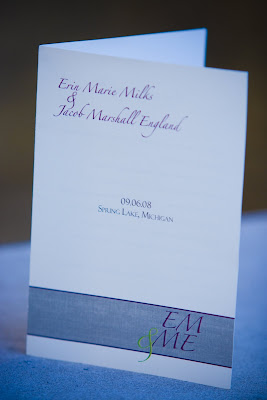 Erin Marie Milks
&
Jacob Marshall England
09.06.08
Spring Lake, Michigan
EM
& ME